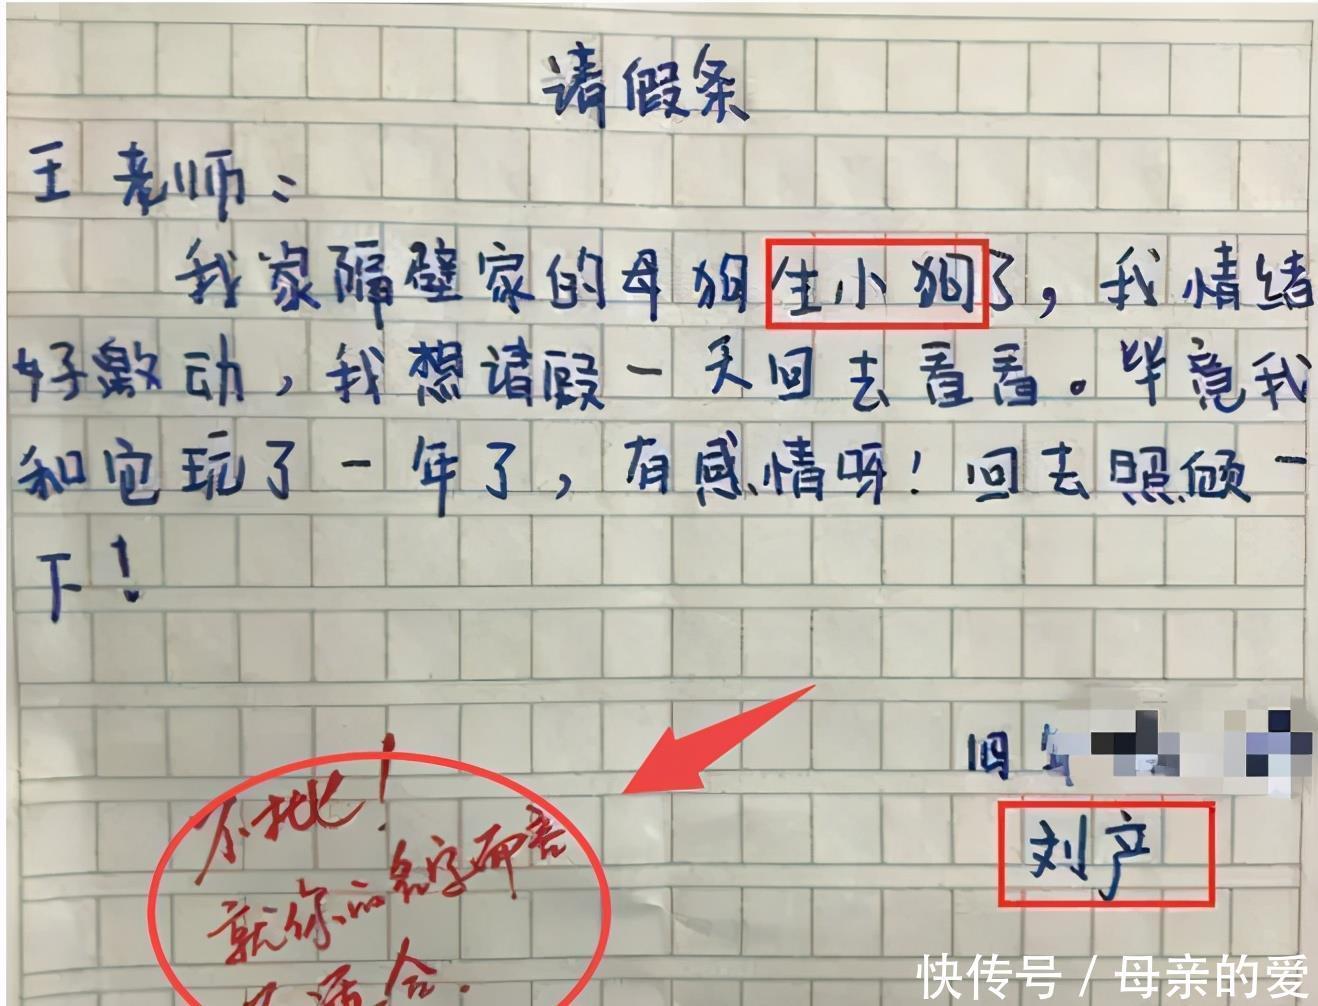 请假条
王老师：
我家隔壁家的母狗生小狗了，我情绪
好激动，我想请假一天回去看看。毕竟我
和它玩了一年了，有感情呀！回去照顾一
下！
四
刘产
不批！
就你的名字而言
不适合.
快传号 / 母亲的爱